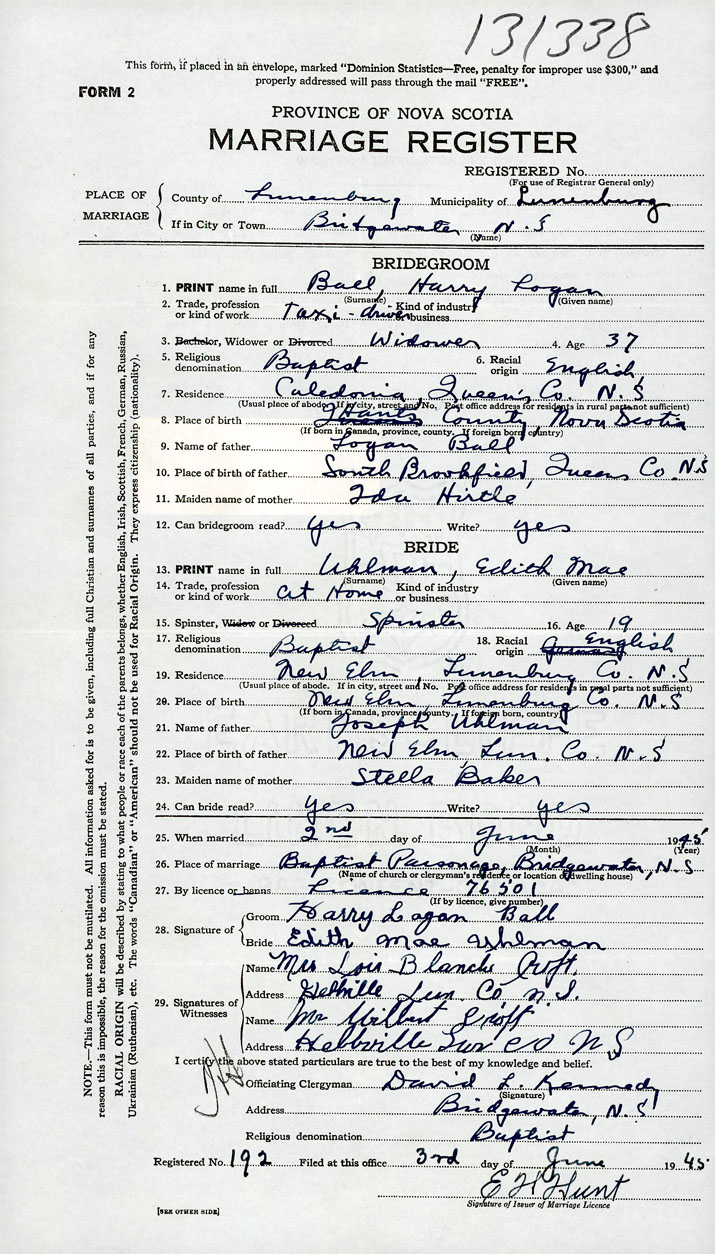 131338
This form, if placed in an envelope, marked "Dominion Statistics—Free, penalty for improper use $300," and
properly addressed will pass through the mail "FREE".
FORM 2
PROVINCE OF NOVA SCOTIA
MARRIAGE REGISTER
REGISTERED No.
(For use of Registrar General only)
PLACE OF MARRIAGE
County of Lunenburg Municipality of Lunenburg
If in City or Town Bridgewater N.S
(Name)
BRIDEGROOM
1. PRINT name in full Ball, Harry Logan
(Surname) (Given name)
2. Trade, profession or kind of work Taxi-driver Kind of industry or business
3. Bachelor, Widower or Divorced Widower 4. Age 37
5. Religious denomination Baptist 6. Racial origin English
7. Residence Caledonia, Queen's Co. N.S
(Usual place of abode. If in city, street and No. Post office address for residents in rural parts not sufficient)
8. Place of birth Hants County, Nova Scotia
(If born in Canada, province, county. If foreign born, country)
9. Name of father Logan Ball
10. Place of birth of father South Brookfield, Queens Co. N.S
11. Maiden name of mother Ida Hirtle
12. Can bridegroom read? yes Write? yes
BRIDE
13. PRINT name in full Uhlman, Edith Mae
(Surname) (Given name)
14. Trade, profession or kind of work At Home Kind of industry or business
15. Spinster, Widow or Divorced Spinster 16. Age 19
17. Religious denomination Baptist 18. Racial origin German English
19. Residence New Elm, Lunenburg Co. N.S
(Usual place of abode. If in city, street and No. Post office address for residents in rural parts not sufficient)
20. Place of birth New Elm, Lunenburg Co. N.S
(If born in Canada, province county. If foreign born, country)
21. Name of father Joseph Uhlman
22. Place of birth of father New Elm Lun. Co. N.S
23. Maiden name of mother Stella Baker
24. Can bride read? yes Write? yes
25. When married 2nd day of June 1945
(Month) (Year)
26. Place of marriage Baptist Parsonage, Bridgewater, N.S
(Name of church or clergyman's residence or location of dwelling house)
27. By licence or banns Licence 76501
(If by licence, give number)
28. Signature of
Groom Harry Logan Ball
Bride Edith Mae Uhlman
29. Signatures of Witnesses
Name Mrs Lois Blanche Croft.
Address Lun Co N.S.
Name Mr Wilbert Croft
Address Lun Co N S
I certify the above stated particulars are true to the best of my knowledge and belief.
Officiating Clergyman David L. Kennedy
(Signature)
Address Bridgewater, N.S
Religious denomination Baptist
Registered No. 192 Filed at this office 3rd day of June 1945
E H Hunt
Signature of Issuer of Marriage Licence
[SEE OTHER SIDE]
NOTE.—This form must not be mutilated. All information asked for is to be given, including full Christian and surnames of all parties, and if for any
reason this is impossible, the reason for the omission must be stated.
RACIAL ORIGIN will be described by stating to what people or race each of the parents belongs, whether English, Irish, Scottish, French, German, Russian,
Ukrainian (Ruthenian), etc. The words "Canadian" or "American" should not be used for Racial Origin. They express citizenship (nationality).